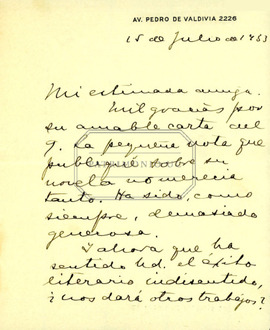 AV. PEDRO DE VALDIVIA 2226
15 de Julio de 1953
Mi estimada amiga.
Mil gracias por
su amable carta del
9. La pequeña nota que
publiqué sobre su
novela no merecía
tanto. Ha sido, como
siempre, demasiado
generosa.
I ahora que ha
sentido Ud. el éxito
literario indiscutido,
¿nos dará otros trabajos?